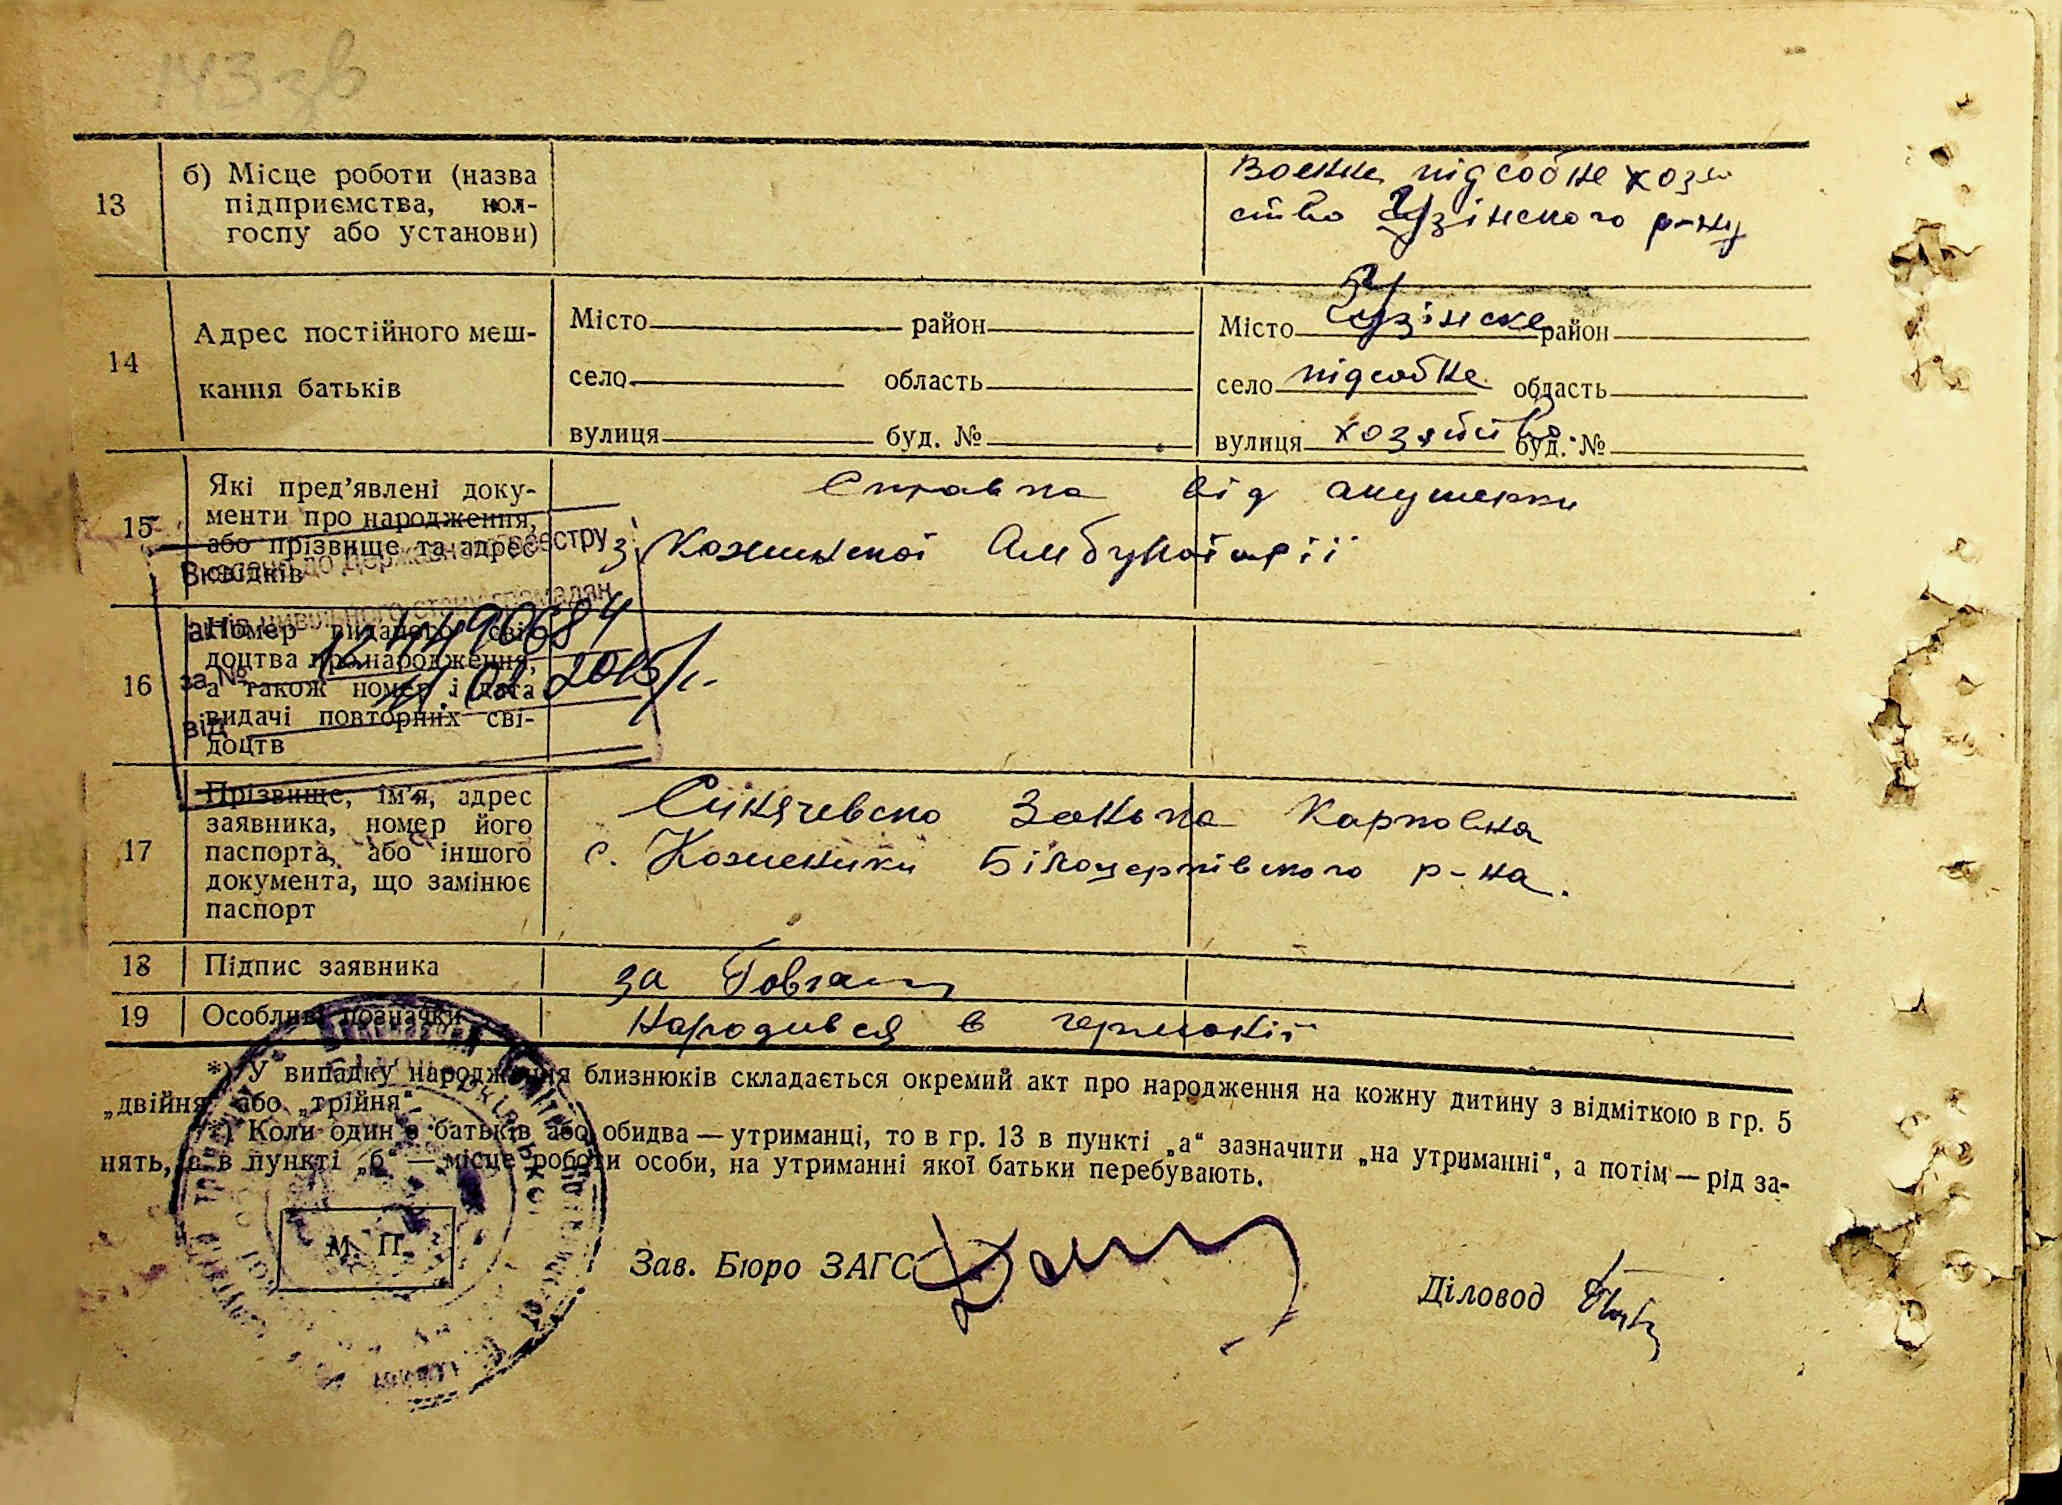 143 зв
13
б) Місце роботи (назва
підприємства, кол-
госпу або установи)
Воєнне підсобне хозя
ство Узінского р-ну
14
Адрес постійного меш-
кання батьків
Місто район
село область
вулиця буд. №
Місто Узінске район
село підсобне область
вулиця хозяйство буд. №
15
Які пред’явлені доку-
менти про народження,
або прізвище та адрес
свідків
Справка від акушерки
з Кожанської Амбулаторії
Внесено до Державного реєстру
актів цивільного стану громадян
за №
від 2015 р.
16
Номер виданого сві-
доцтва про народження,
а також номер і дата
видачі повторних сві-
доцтв
17
Прізвище, ім’я, адрес
заявника, номер його
паспорта, або іншого
документа, що замінює
паспорт
Карповна
с. Білоцерківского р-на.
18
Підпис заявника
за
19
Особливі позначки
Народився в германії
*) У випадку народження близнюків складається окремий акт про народження на кожну дитину з відміткою в гр. 5
„двійня“ або „трійня“.
*) Коли один з батьків або обидва — утриманці, то в гр. 13 в пункті „а“ зазначити „на утриманні“, а потім — рід за-
нять, а в пункті „б“ — місце роботи особи, на утриманні якої батьки перебувають.
М. П.
Зав. Бюро ЗАГС
Діловод